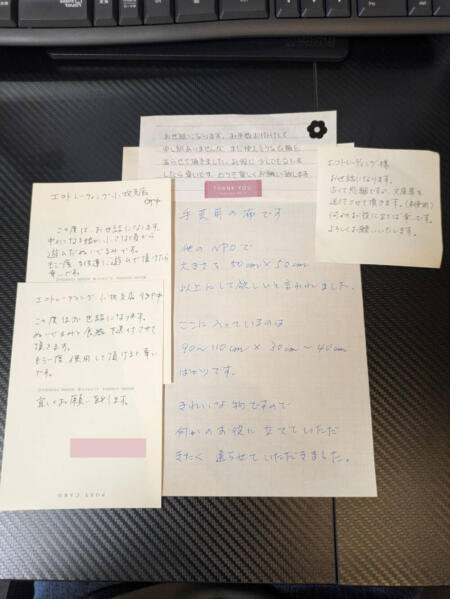 お世話になります。お手数お掛けして
申し訳ありませんが、まだ使えそうな服を
送らせて頂きました。お役に少しでも立てま
したら幸いです。どうぞ宜しくお願い致します。
THANK YOU
エコトレーディング様
お世話になります。
古くて恐縮ですが、文房具を
送付させて頂きます。(未使用)
何かのお役に立てば幸いです。
よろしくお願いいたします。
エコトレーディング小牧支店
この度は、お世話になります。
遊んだぬいぐるみです。
もう一度 子供達に遊んで頂けたら
幸いです。
エコトレーディング 小牧支店
この度はお世話になります。
ぬいぐるみと食器を送付させて
頂きます。
もう一度使用して頂けますと幸い
です。
宜しくお願い致します。
POST CARD
手芸用の布です
他のNPOで
大きさを50cm×50cm
以上にして欲しいと言われました。
ここに入っているのは
90〜110cm × 30cm〜40cm
ばかりです。
きれいな物ですので
何かのお役に立てていただ
きたく 送らせていただきました。